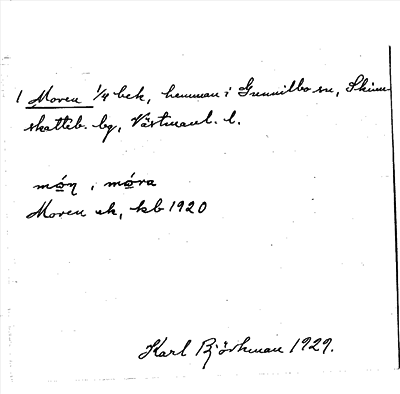 1 Moren 1/4 bek, hemman i Gunnilbo sn, Skinn
skatteb. bg, Västmanl. l.
mọ́ṇ , i mọ́ra
Moren ek, kb 1920
Karl Björkman 1929.